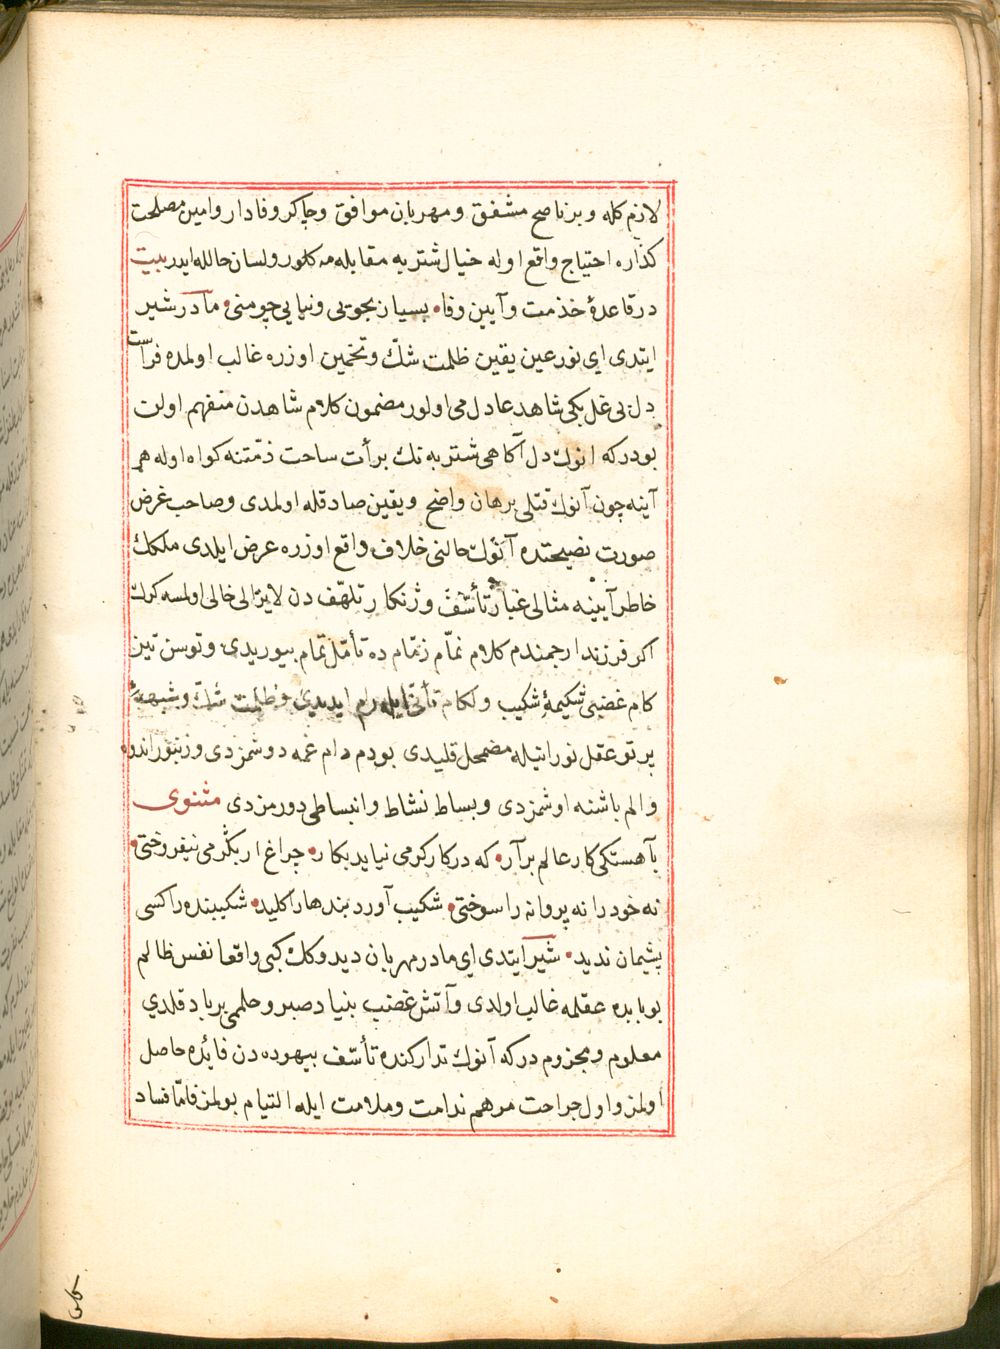 لازم كله و بر ناصح مشفق و مهربان موافق و چاكر وفادار و امين مصلحت
كذاره احتياج واقع اوله خيال شتربه مقابله مه كلور و لسان حالله ايدر بيت
در قاعدهٔ خدمت و آيين وفا • بسيار بجويى و نيابى چو منى • مادر شير
ايتدى اى نور عين يقين ظلمت شكّ و تخمين اوزره غالب اولمده فراست
دل بى غل بكى شاهد عادل مى اولور مضمون كلام شاهدن متفهم اولت
بودر كه انوك دل آكاهى شتربه نك برأت ساحت ذمّتنه كواه اوله هر
آينه چون آنوك قتلى برهان واضح و يقين صادقله اولمدى و صاحب غرض
صورت نصيحتده آنوك حالنى خلاف واقع اوزره عرض ايلدى ملكك
خاطر آيينه مثالى غبار تأسّف و ژنكار تلهّف دن لايزالى خالى اولمسه كرك
اكر فرزند ارجمندم كلام نمّام زمّام ده تأمّل تمام بيوريدى و توسن تيز
كام غضبى شكيمهٔ شكيب و لكام تأنّى ايله رام ايديدى و ظلمت شكّ و شبهه‌ئ
پرتو عقل نورانيله مضمحل قليدى بودم دام غمه دوشمزدى و زنبور اندوه
و الم باشنه اوشمزدى و بساط نشاط و انبساطى دورمزدى مثنوى
بآهستكى كار عالم برآر • كه در كار كرمى نيايد بكار • چراغ ار بكرمى نيفروختى •
نه خود را نه پروانه را سوختى • شكيب آورد بندها را كليد • شكيبنده را كسى
پشيمان نديد • شير ايتدى اى مادر مهربان ديدوكك كبى واقعا نفس ظالم
بوبابده عقلمه غالب اولدى و آتش غضب بنياد صبر و حلمى برباد قلدى
معلوم و مجزوم در كه آنوك تداركنده تأسّف بيهوده دن فائده حاصل
اولمز و اول جراحت مرهم ندامت و ملامت ايله التيام بولمز فامّا فساد